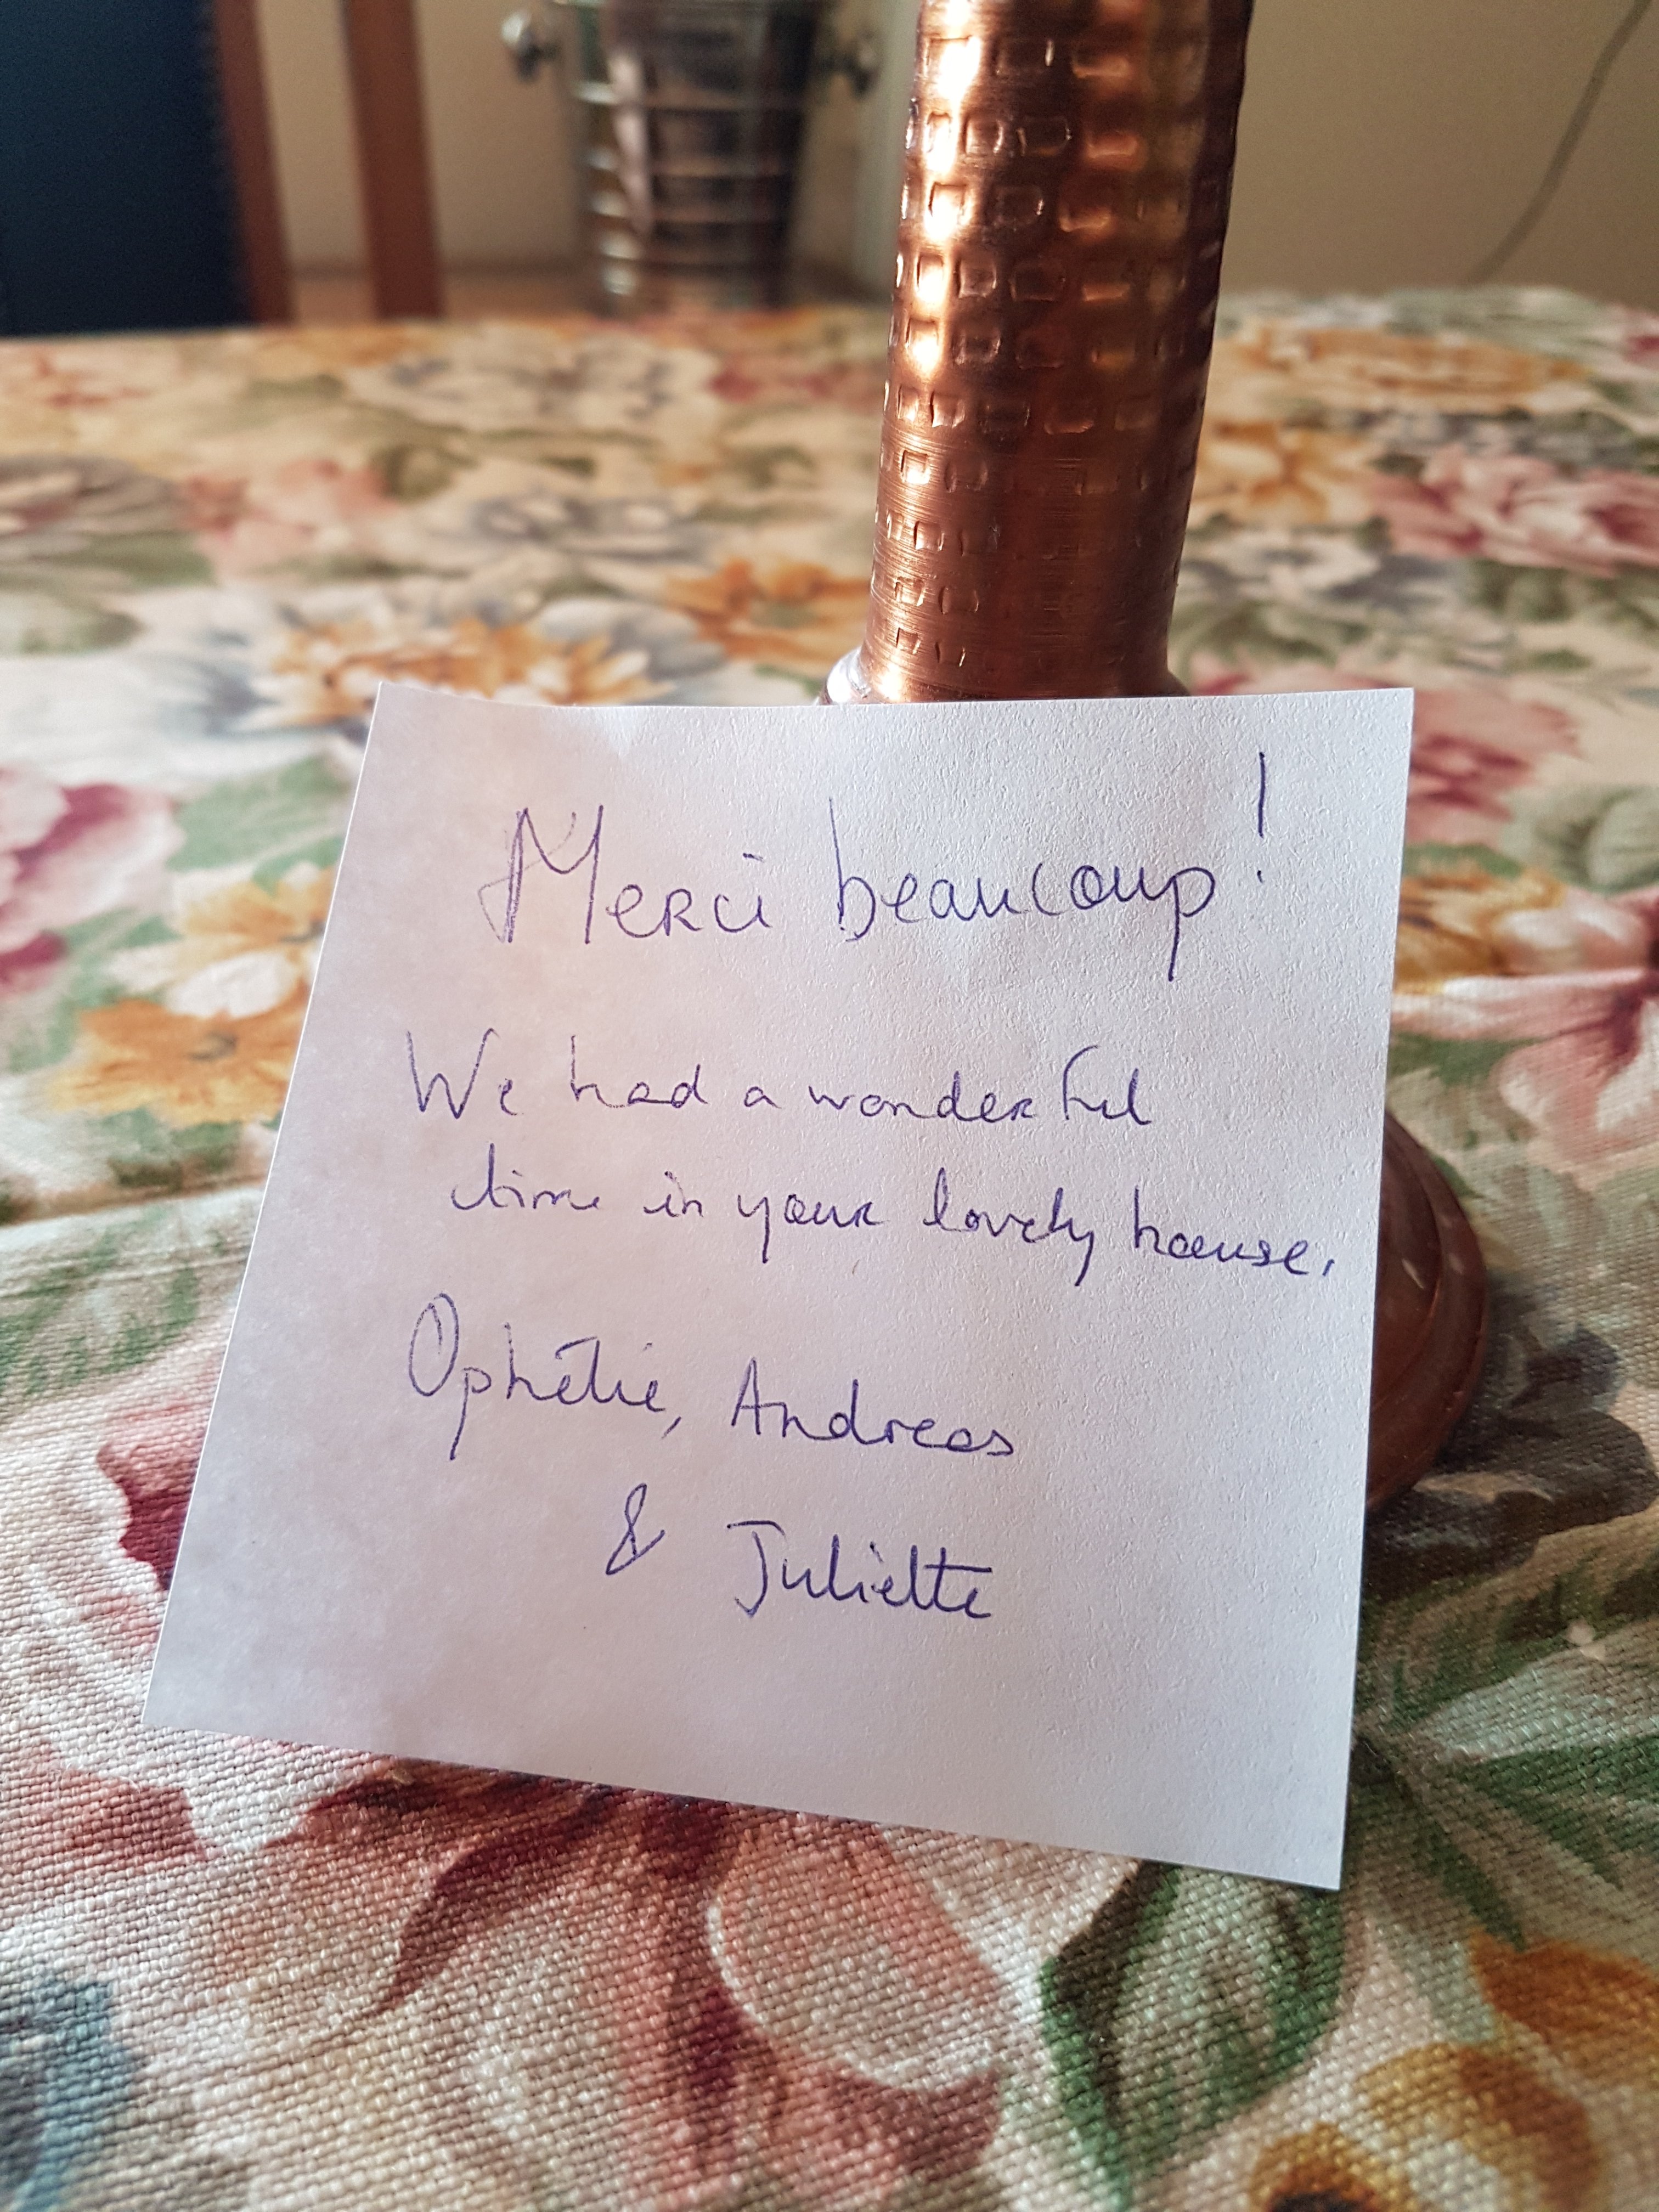 Merci beaucoup!
We had a wonderful
time in your lovely house.
Ophélie, Andreas
& Juliette